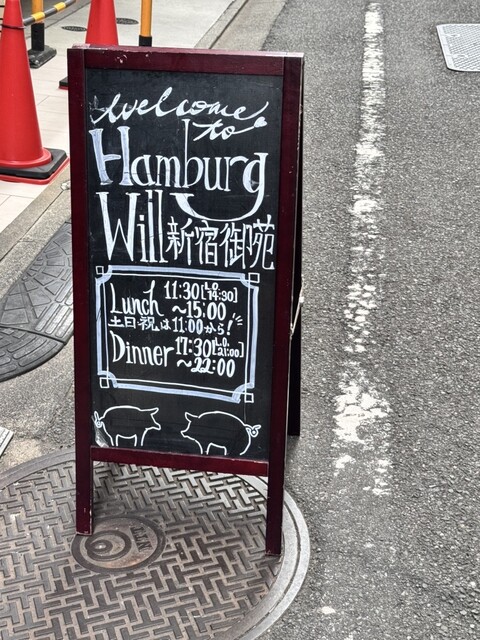 welcome
to
Hamburg
Will新宿御苑
Lunch 11:30[L.O.14:30]
~15:00
土日・祝は11:00から!
Dinner 17:30[L.O.21:00]
~22:00